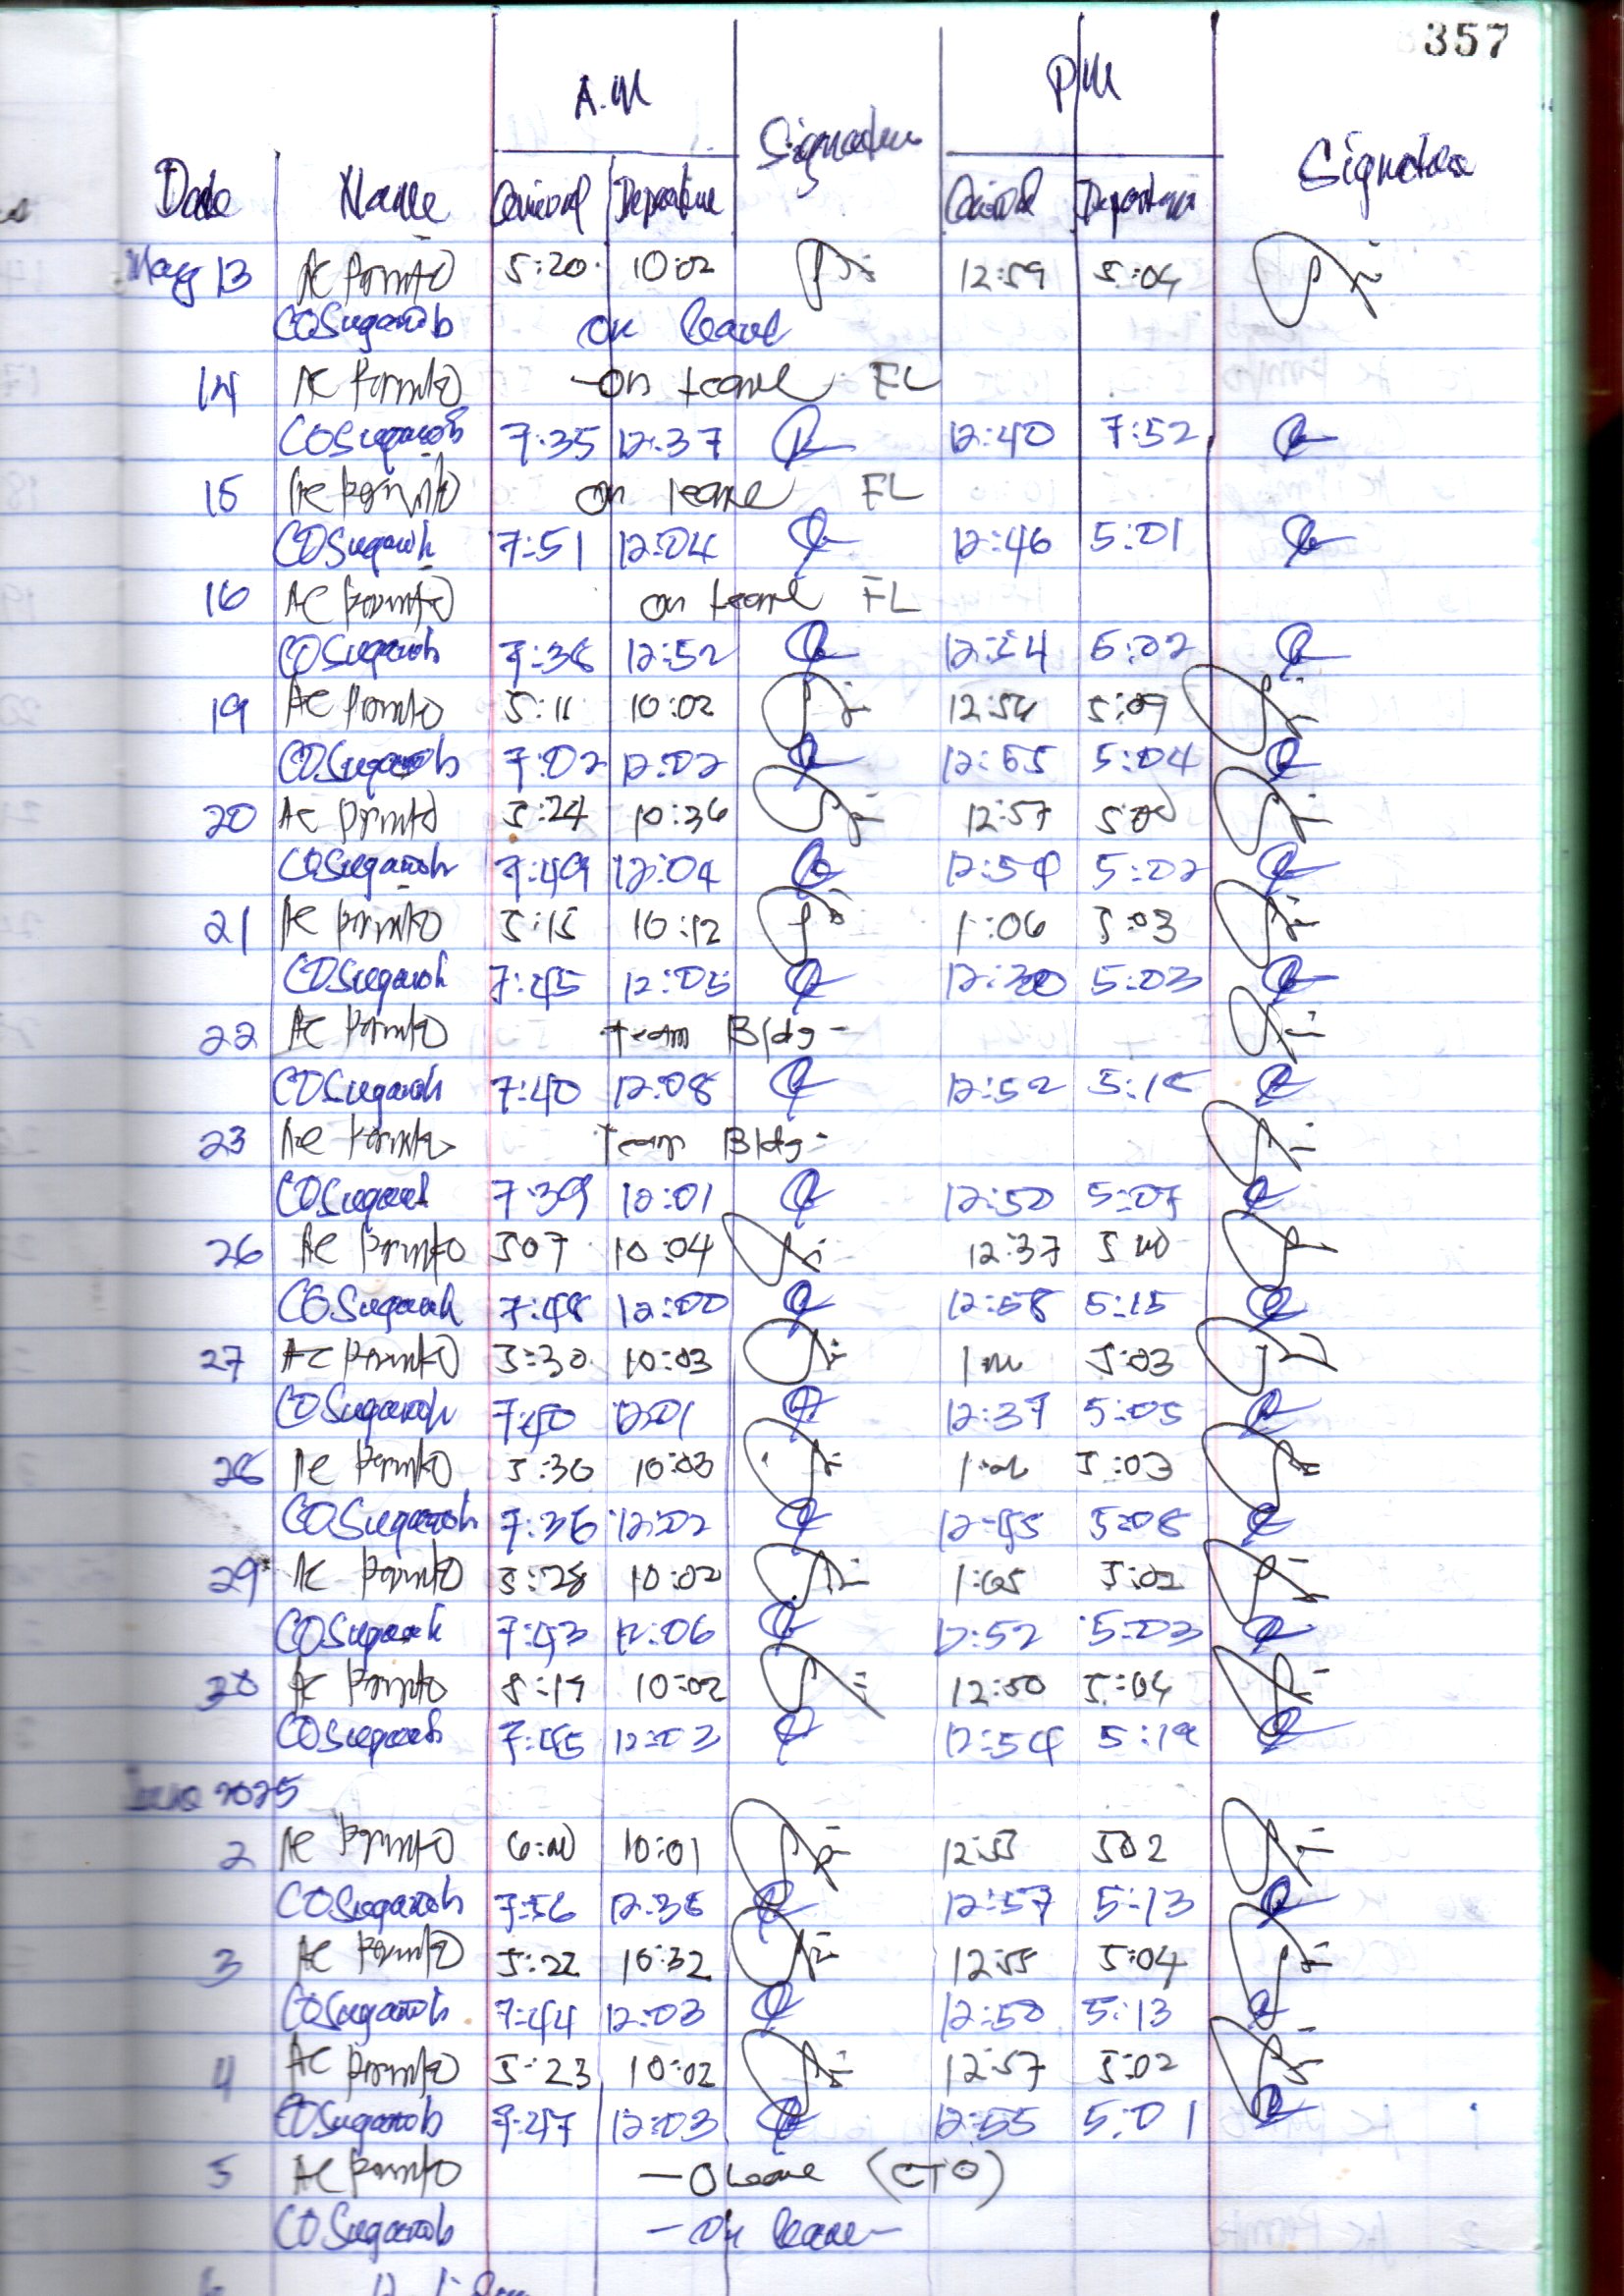 357
A.M P/M
Signature Signature
Date Name Arrival Departure Arrival Departure
May 13 AC Pormto 5:20 10:02 12:59 5:04
COSuganob on leave
14 AC Pormto - on leave FL
COSuganob 7:35 12:37 12:40 7:52
15 AC Pormto on leave FL
COSuganob 7:51 12:04 12:46 5:01
16 AC Pormto on leave FL
COSuganob 7:36 12:52 12:54 5:02
19 AC Pormto 5:11 10:02 12:54 5:09
COSuganob 7:02 12:02 12:55 5:04
20 AC Pormto 5:24 10:36 12:57
COSuganob 7:49 12:04 12:54 5:02
21 AC Pormto 5:15 10:12 1:06 5:03
COSuganob 7:45 12:05 12:30 5:03
22 AC Pormto team Bldg -
COSuganob 7:40 12:08 12:52 5:15
23 AC Pormto Team Bldg -
COSuganob 7:39 12:01 12:50 5:07
26 AC Pormto 507 10:04 12:37
COSuganob 7:48 12:00 12:58 5:15
27 AC Pormto 5:30 10:03 5:03
COSuganob 7:40 12:01 12:37 5:05
28 AC Pormto 5:30 10:03 5:03
COSuganob 7:36 12:02 12:45 5:08
29 AC Pormto 5:28 10:02 1:05 5:02
COSuganob 7:43 12:06 12:52 5:03
30 AC Pormto 5:19 10:02 12:50 5:04
COSuganob 7:45 12:03 12:54 5:19
June 2025
2 AC Pormto 6:00 10:01 12:55 502
COSuganob 7:56 12:35 12:57 5:13
3 AC Pormto 5:22 10:32 12:55 5:04
COSuganob 7:44 12:03 12:50 5:13
4 AC Pormto 5:23 10:02 12:57 5:02
COSuganob 7:47 12:03 12:55 5:01
5 AC Pormto - O leave (CTO)
COSuganob - On leave -
6